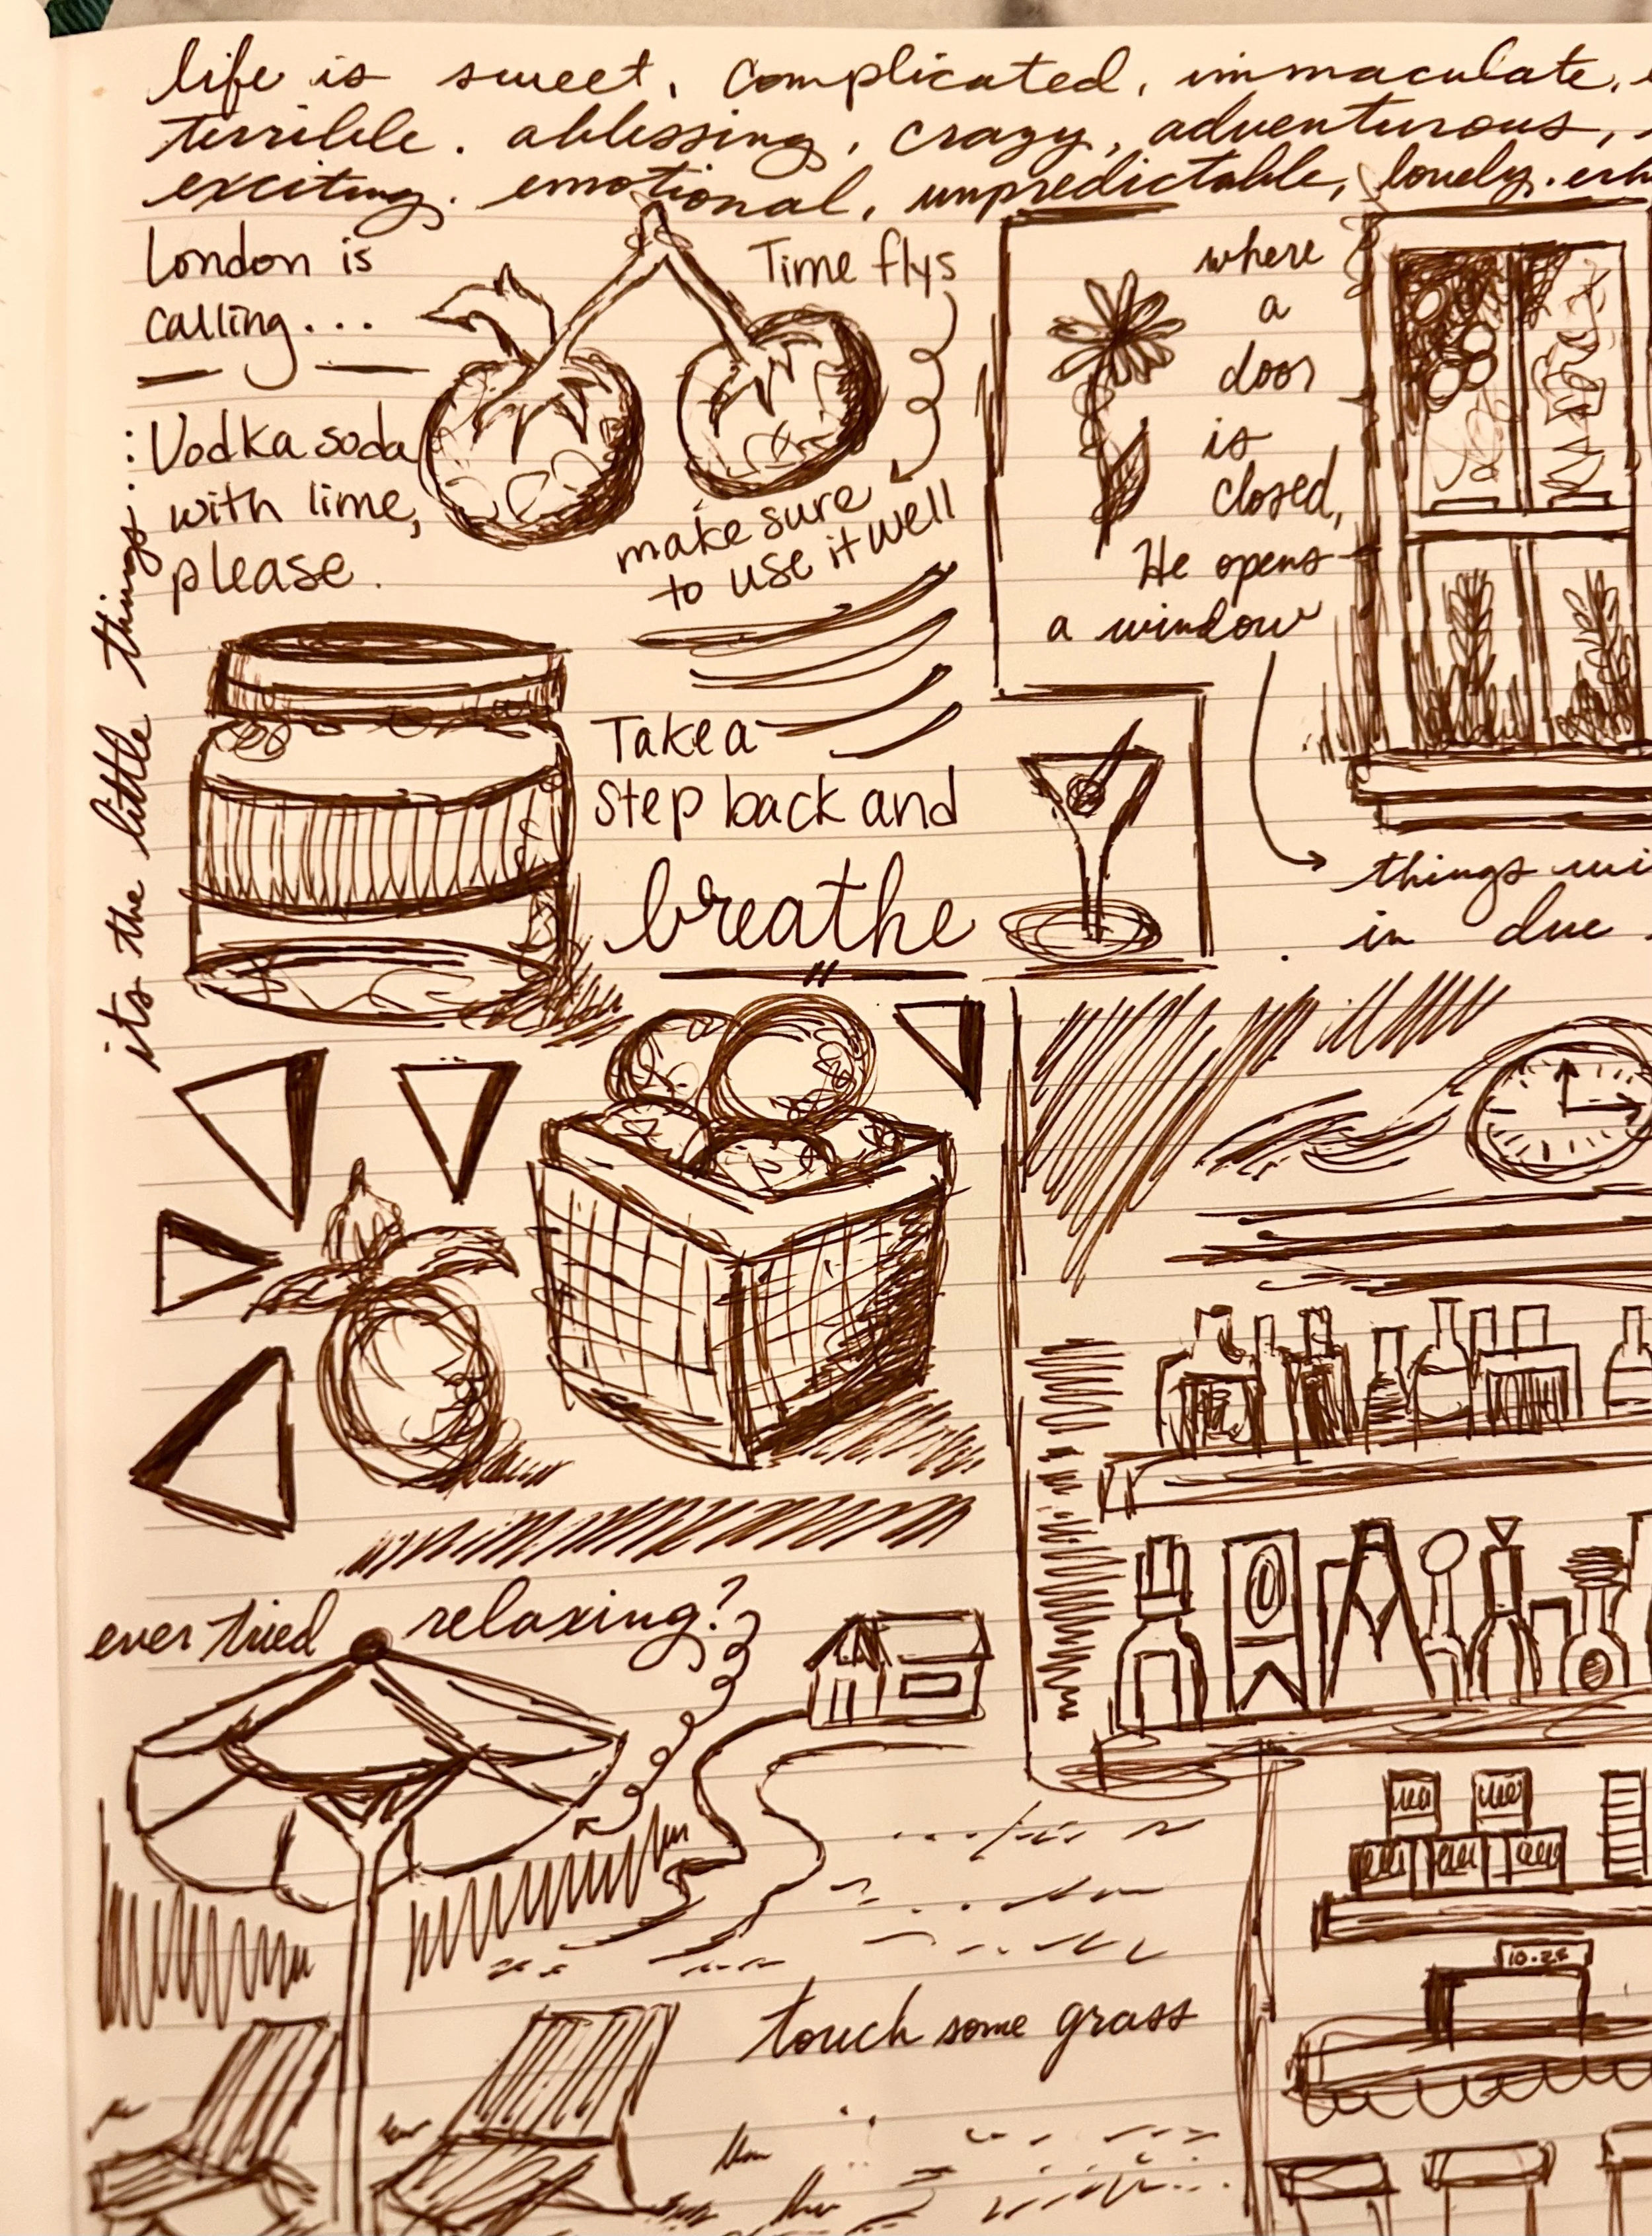 life is sweet, complicated, immaculate,
terrible. a blessing, crazy, adventurous,
exciting. emotional, unpredictable, lovely.
London is
calling...
Time flys
make sure
to use it well
its the little things:
: Vodka soda
with lime,
please.
where
a
door
is
closed,
He opens
a window
things
in due
Take a
step back and
breathe
ever tried relaxing?
10:25
touch some grass